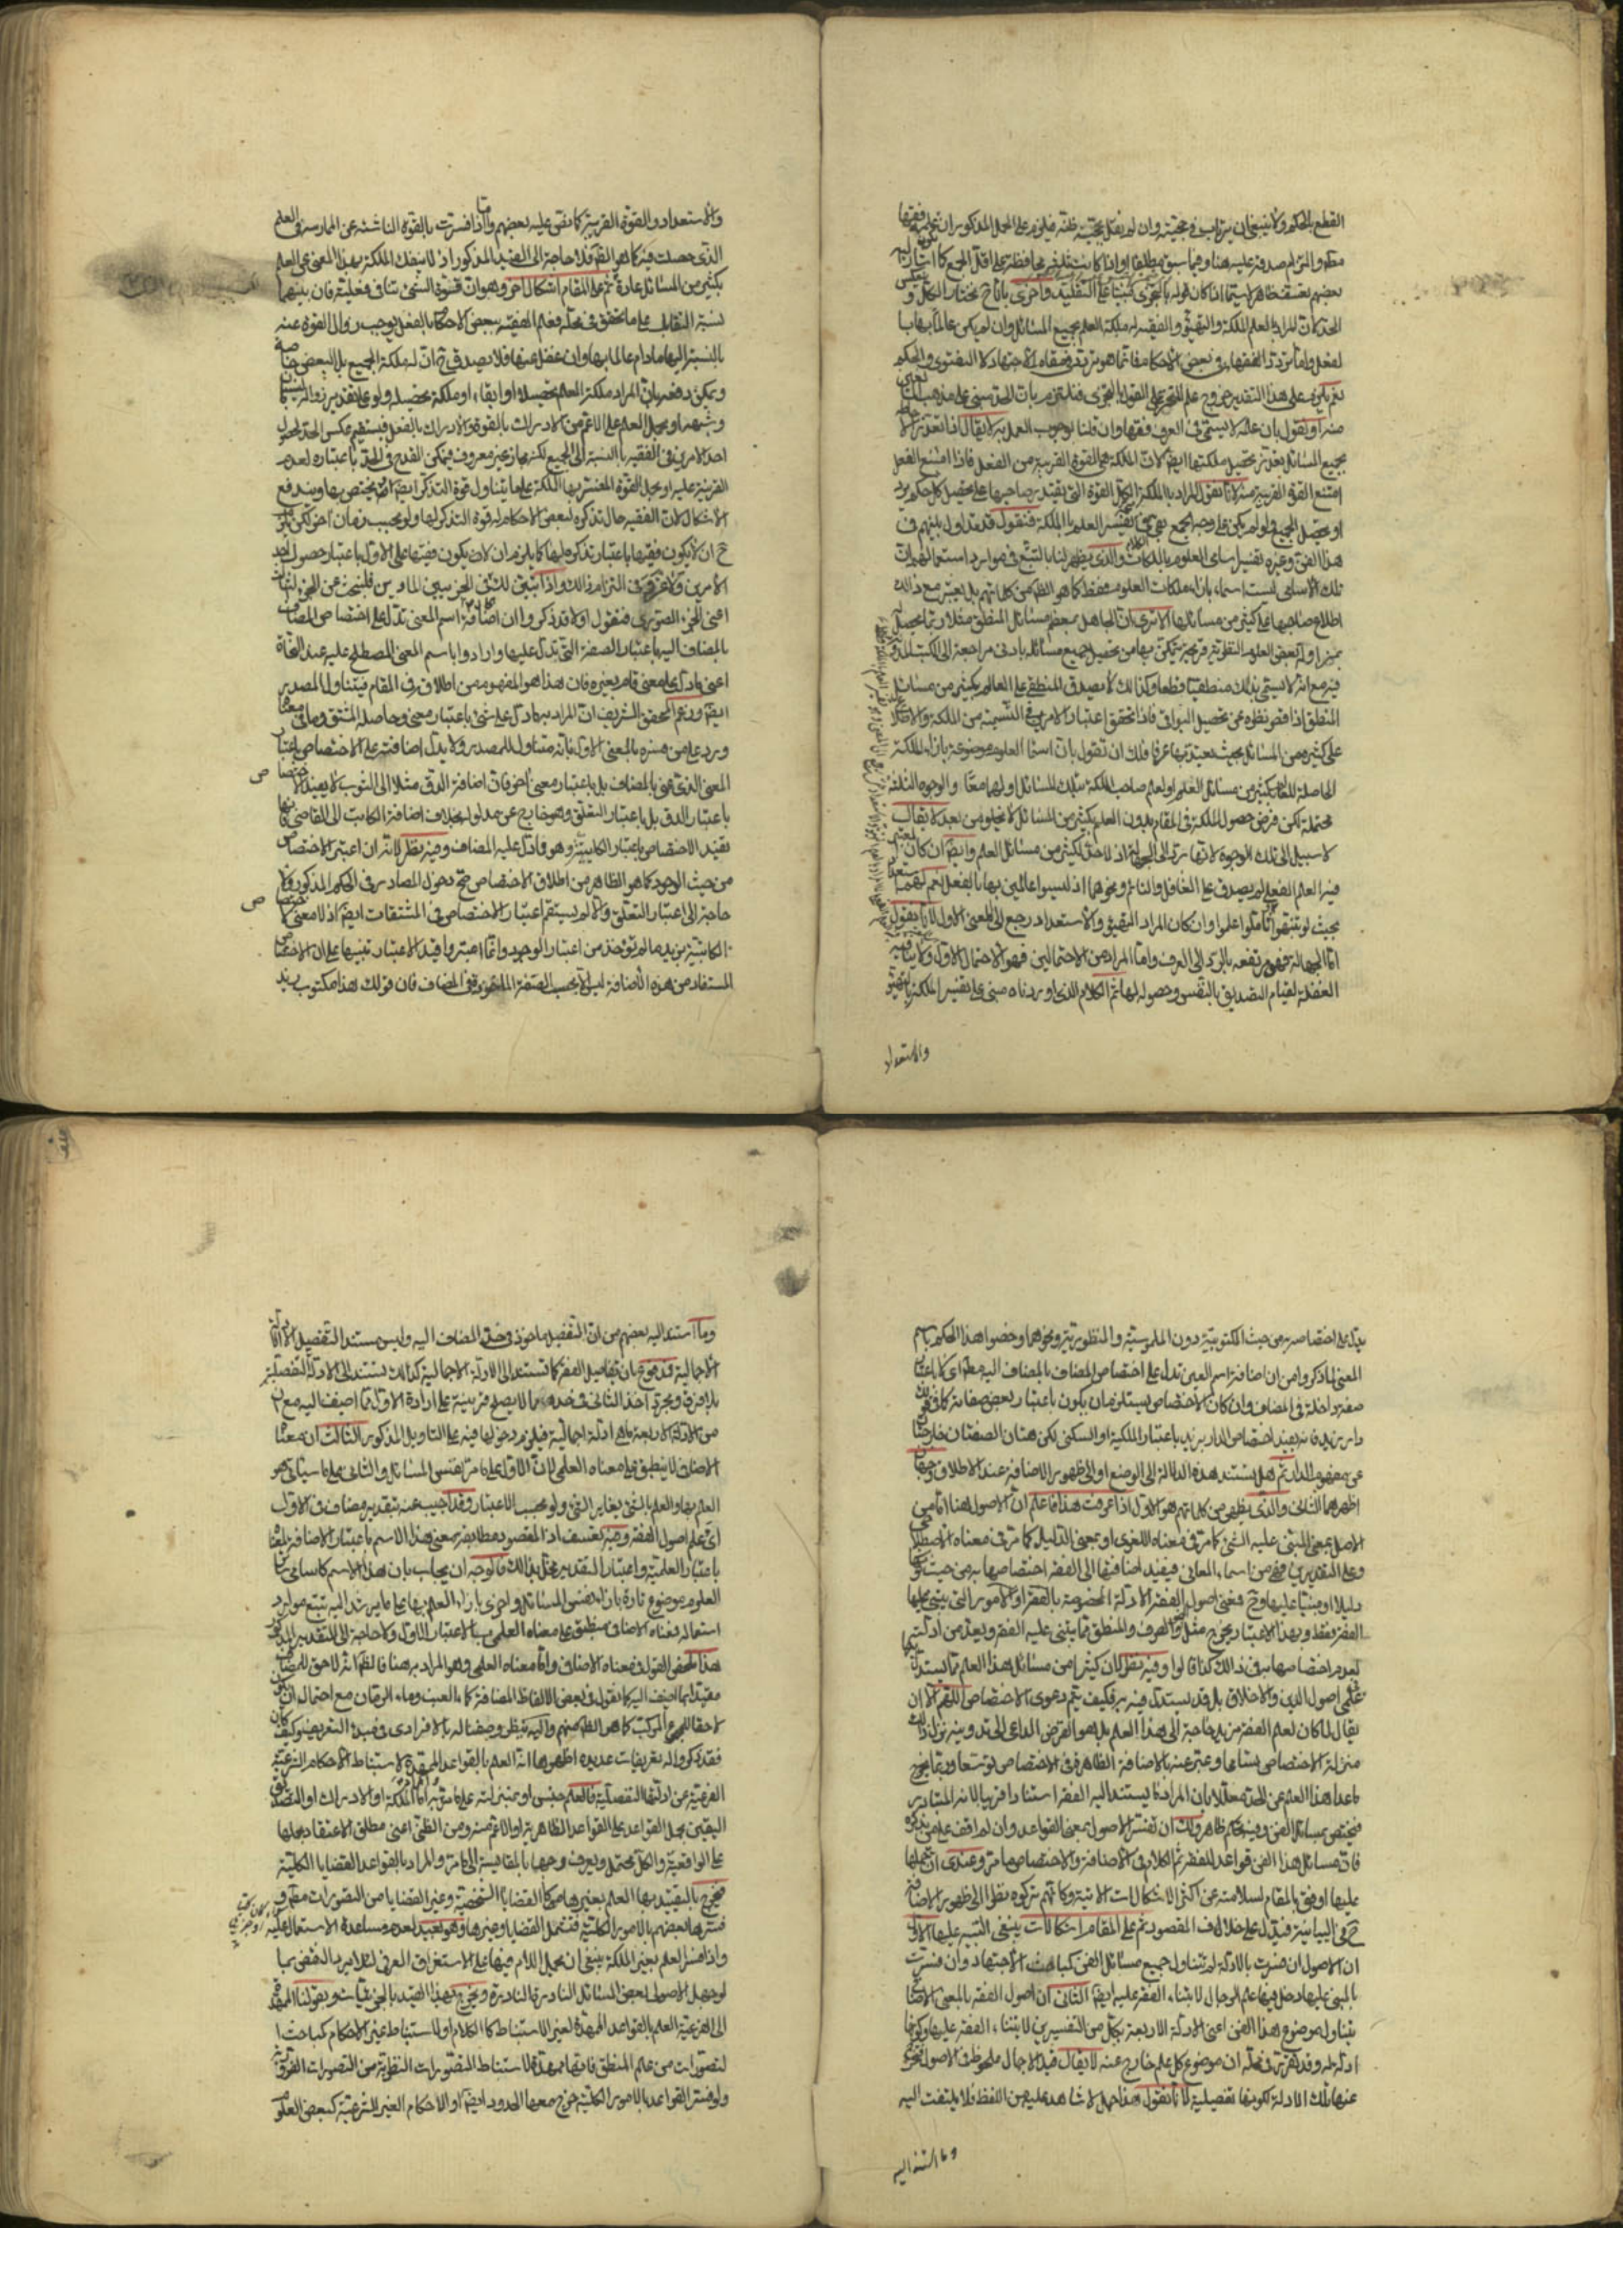 القطع بالحكم ولا ينبغى ان يرتاب فى حجيته وان لم نقل بحجية ظنه فيلزم على الحمل المذكور ان علمه فقها
معلم والتزام صدقه عليه هنا وفيما سبق مطلقا او اذا كانت بقدر محافظة على اقل الجمع كما اشار اليه
بعضهم تعسف ظاهر لا سيما اذا كان قوله بالتجزى مبنيا على التقليد واخرى بانا نختار الكل و
الحد كان المراد بالعلم الملكة والتهيؤ والفقيه له ملكة العلم بجميع المسائل وان لم يكن عالما بها بال
لفعل واما تردد الفقهاء فى بعض الاحكام فانما هو تردد فى مقام الاجتهاد لا الفتوى والحكم
نعم يلزم على هذا التقدير خروج علم المتجزى على القول بالتجزى فنلتزم بان الحد مبنى على مذهب
منه او نقول بان علمه لا يسمى فى العرف فقها وان قلنا بوجوب العمل به لا يقال اذا تعذر العلم
بجميع المسائل تعذر تحصيل ملكتها ايضا لان الملكة هى القوة القريبة من الفعل فاذا امتنع الفعل
امتنع القوة القريبة منه لانا نقول المراد بالملكة الكل القوة التى يقتدر صاحبها على تحصيل كل حكم يرد
او تحصيل الجميع لو لم يكن على وجه الجمع بقى فى تفسير العلم بالملكة فنقول قد تداول بينهم فى
هذا الفن وغيره تفسير اسامى العلوم بالملكات والذى يظهر لنا بالتتبع فى موارد استعمالهم ان
تلك الاسامى ليست اسماء بازاء ملكات العلوم فقط كما هو الظاهر من كلماتهم بل يعتبر مع ذلك
اطلاع صاحبها على كثير من مسائلها الا ترى ان الجاهل ببعض مسائل المنطق مثلا ربما يحصل له
بمزاولة بعض العلوم النقلية قوة قريبة يتمكن بها من تحصيل جميع مسائله بادنى مراجعة الى الكتب المدونة
فيه مع انه لا يسمى بذلك منطقيا قطعا وكذلك لا يصدق المنطقى على العالم بكثير من مسائل
المنطق اذا قصر نظره عن تحصيل البواقى فاذا تحقق اعتبار الامرين فى التسمية من الملكة والاطلاع
على كثير من المسائل بحيث يعتد بها عرفا فلك ان تقول بان اسماء العلوم موضوعة بازاء الملكة
الحاصلة للعالم بكثير من مسائل العلم او لعلم صاحب الملكة بتلك المسائل او لهما معا والوجوه الثلثة
محتملة لكن فرض حصول الملكة فى المقام بدون العلم بكثير من المسائل لا يخلو من بعد لا يقال
لا سبيل الى تلك الوجوه لانها ترد الى الجهالة اذ لا حد لكثير من مسائل العلم وايضا ان كان المعتبر
فيه العلم الفعلى لم يصدق على الغافل والنائم ونحوهما اذ ليسوا عالمين بها بالفعل نعم لهم استعداد
بحيث لو تنبهوا او تاملوا علموا وان كان المراد التهيؤ والاستعداد رجع الى المعنى الاول لانا نقول
اما الجهالة فهى مرتفعة بالرد الى العرف واما المراد من الاحتمالين فهو الاحتمال الاول ولا ينافيه
الغفلة لقيام التصديق بالنفس وحصوله لها ثم الكلام الذى اوردناه مبنى على تفسير الملكة بالتهيؤ
والاستعداد
والاستعداد والقوة القريبة كما نص عليه بعضهم واما اذا فسرت بالقوة الناشئة عن الممارسة فى العلم
الذى حصلت فيه كما هو الظاهر فلا حاجة الى القيد المذكور اذ لا ينفك الملكة بهذا المعنى عن العلم
بكثير من المسائل عادة ثم على المقام اشكال اخر وهو ان قوة الشئ تنافى فعليته فان بينهما
نسبة التقابل على ما تحقق فى محله فعلم الفقيه ببعض الاحكام بالفعل يوجب زوال القوة عنه
بالنسبة اليها ما دام عالما بها وان غفل عنها فلا يصدق ح ان له ملكة الجميع بل البعض خاصة
ويمكن دفعه بان المراد ملكة العلم تحصيلا او ابقاء او ملكة تحصيله ولو على تقدير زواله لنسيان
وشبهه او يحمل العلم على الاعم من الادراك بالقوة والادراك بالفعل فيستقيم عكس الحد لحصول
احد الامرين فى الفقيه بالنسبة الى الجميع لكنه مجاز غير معروف فيمكن القدح فى الحد باعتباره لعدم
القرينة عليه او يجعل القوة المفسر بها الملكة على ما يتناول قوة التذكر ايضا اذ لا يختص بها ويندفع
الاشكال لان الفقيه حال تذكره لبعض الاحكام له قوة التذكر لها ولو بحسب زمان اخر لكن يلزم
ح ان لا يكون فقيها باعتبار تذكره لها كما يلزم ان لا يكون فقيها على الاول باعتبار حصول احد
الامرين ولا غرو فى التزام ذلك واذا تبين لك شرح الجزئين الماديين فلنبحث عن الجزء الثالث
اعنى الجزء الصورى فنقول اولا قد ذكروا ان اضافة اسم المعنى تدل على اختصاص المضاف
بالمضاف اليه باعتبار الصفة التى تدل عليها وارادوا باسم المعنى المصطلح عليه عند النحاة
اعنى ما دل على معنى قام بغيره فان هذا هو المفهوم من اطلاقه فى المقام فيتناول المصدر
ايضا وزعم المحقق الشريف ان المراد به ما دل على شئ باعتبار معنى وحاصله المشتق وما فى معناه
ورد على من فسره بالمعنى الاول بانه متناول للمصدر ولا يدل اضافته على الاختصاص باعتبار
المعنى الذى عنى بالمضاف بل باعتبار معنى اخر فان اضافة الدق مثلا الى الثوب لا يفيد الاختصاص
باعتبار الدق بل باعتبار التعلق وهو خارج عن مدلوله بخلاف اضافة الكاتب الى القاضى فانها
تفيد الاختصاص باعتبار الكاتبية وهو ما دل عليه المضاف وفيه نظر لانه ان اعتبر الاختصاص
من حيث الوجود كما هو الظاهر من اطلاق الاختصاص صح دخول المصادر فى الحكم المذكور ولا
حاجة الى اعتبار التعلق والا لم يستقم اعتبار الاختصاص فى المشتقات ايضا اذ لا معنى لاختصاص
الكاتبية بزيد ما لم يؤخذ من اعتبار الوجود وانما اعتبروا قيد الاعتبار تنبيها على ان الاختصاص
المستفاد من هذه الاضافة ليس الا بحسب الصفة الماخوذة فى المضاف فان قولك هذا مكتوب زيد
يدل على اختصاصه به من حيث المكتوبية دون الملموسية والمنظورية ونحوهما وخصوا هذا الحكم باسم
المعنى لما ذكروا من ان اضافة اسم العين تدل على اختصاص المضاف بالمضاف اليه مطلقا اى لا باعتبار
صفة داخلة فى المضاف وان كان الاختصاص يستلزم ان يكون باعتبار بعض صفاته كما فى قولك
دار زيد فانه يفيد اختصاص الدار بزيد باعتبار الملكية او السكنى لكن هتان الصفتان خارجتان
عن مفهوم الدار ثم هل يستند هذه الدلالة الى الوضع او الى ظهور الاضافة عند الاطلاق وجهان
اظهرهما الثانى والذى يظهر من كلماتهم هو الاول اذا عرفت هذا فاعلم ان الاصول هنا اما من
الاصل بمعنى المبتنى عليه الشئ كما مر فى معناه اللغوى او بمعنى الدليل كما مر فى معناه الاصطلاحى
وعلى التقديرين فهى من اسماء المعانى فيفيد اضافتها الى الفقه اختصاصها به من حيث كونها
دليلا او مبتنيا عليها وح فمعنى اصول الفقه الادلة المخصوصة بالفقه او الامور التى يبتنى عليها
الفقه فقط وبهذا الاعتبار يخرج مثل النحو والصرف والمنطق مما يبتنى عليه الفقه ويعد من ادلته
لعدم اختصاصها به فى ذلك كذا قالوا وفيه نظر لان كثيرا من مسائل هذا العلم مما يستدل به
فى علمى اصول الدين والاخلاق بل قد يستدل فيه به فكيف يتم دعوى الاختصاص للفقه الا ان
يقال لما كان لعلم الفقه مزيد حاجة الى هذا العلم بل هو الغرض الداعى الى تدوينه نزل ذلك
منزلة الاختصاص بشانها وعبر عنه بالاضافة الظاهرة فى الاختصاص توسعا وربما يخرج
ما عدا هذا العلم عن الحد معللا بان المراد ما يستند اليه الفقه استنادا قريبا لانه المتبادر
فيختص بمسائل الفن وفيه تحكم ظاهر ولك ان تفسر الاصول بمعنى القواعد وان لم اقف على من ذكره
فان مسائل هذا الفن قواعد للفقه ثم الكلام فى الاضافة والاختصاص ما مر وعندى ان حملها
عليها اوفق بالمقام لسلامته عن اكثر الاشكالات الاتية وكانهم تركوه نظرا الى ظهور الاضافة
ح فى البيانية فيدل على خلاف المقصود ثم على المقام اشكالات ينبغى التنبيه عليها الاول
ان الاصول ان فسرت بالادلة لم يتناول جميع مسائل الفن كمباحث الاجتهاد وان فسرت
بالمبنى عليها دخل فيها علم الرجال لابتناء الفقه عليه ايضا الثانى ان اصول الفقه بالمعنى الاضافى
يتناول موضوع هذا الفن اعنى الادلة الاربعة بكل من التفسيرين لابتناء الفقه عليها وكونها
ادلة له وقد تقرر فى محله ان موضوع كل علم خارج عنه لا يقال قيد الاجمال ملحوظ فى الاصول فتخرج
عنها تلك الادلة لكونها تفصيلية لانا نقول هذا حمل لا شاهد عليه من اللفظ فلا يلتفت اليه
وما استند اليه
وما استند اليه بعضهم من ان التفصيل ماخوذ فى حد المضاف اليه وليس مستند التفصيل الا الادلة
الاجمالية فمدفوع بان تفاصيل الفقه كما تستند الى الادلة الاجمالية كذلك تستند الى الادلة التفصيلية
بلا فرق ومجرد اخذ الثانى فى حده لا يصلح قرينة على ارادة الاول مما اضيف اليه مع ان
من الادلة الاربعة ما هو ادلة اجمالية فيلزم دخولها فيه على التاويل المذكور الثالث ان معناه
الاضافى لا ينطبق على معناه العلمى لان الاول على ما مر نفس المسائل والثانى على ما سياتى هو
العلم بها والعلم بالشئ يغاير الشئ ولو بحسب الاعتبار وقد اجيب عنه بتقدير مضاف فى الاول
اى علم اصول الفقه وفيه تعسف اذ المقصود مطابقة معنى هذا الاسم باعتبار الاضافة لمعناه
باعتبار العلمية واعتبار التقدير مخل بذلك فالوجه ان يجاب بان هذا الاسم كاسامى سائر
العلوم موضوع تارة بازاء نفس المسائل واخرى بازاء العلم بها على ما يرشد اليه تتبع موارد
استعماله فمعناه الاضافى منطبق على معناه العلمى بالاعتبار الاول ولا حاجة الى التقدير المذكور
هذا محصل القول فى معناه الاضافى واما معناه العلمى وهو المراد به هنا فالظاهر انه لاحق للمضاف
مقيدا بما اضيف اليه كما نقول فى بعض الالفاظ المضافة كماء العنب وماء الرمان مع احتمال ان يكون
لاحقا للمجموع المركب كما هو الظاهر منهم واليه ينظر وصفنا له بالافرادى فى مبدء التعريف وكيف كان
فقد ذكروا له تعريفات عديدة اظهرها انه العلم بالقواعد الممهدة لاستنباط الاحكام الشرعية
الفرعية عن ادلتها التفصيلية فالعلم جنس او بمنزلته على ما مر والمراد به اما الملكة او الادراك او التصديق
اليقينى بحمل القواعد على القواعد الظاهرية او الاعم منه ومن الظن اعنى مطلق الاعتقاد بحملها
على الواقعية والكل محتمل ويعرف وجهها بالمقايسة الى ما مر والمراد بالقواعد القضايا الكلية
فخرج بالتقييد بها العلم بغيرها من القضايا الشخصية وغير القضايا من التصورات
فسرها بعضهم بالامور الكلية فتشمل القضايا وغيرها وهو بعيد لعدم مساعدة الاستعمال عليه
واذا فسر العلم بغير الملكة ينبغى ان يحمل اللام فيها على الاستغراق العرفى لئلا يرد النقض بما
لو جهل الاصولى بعض المسائل النادرة النادرة وخرج بهذا القيد بالجزئيات وبقولنا الممهدة
الى الفرعية العلم بالقواعد الممهدة لغير الاستنباط كالكلام او لاستنباط غير الاحكام كمباحث ا
لتصورات من علم المنطق فانها ممهدة لاستنباط التصورات النظرية من التصورات الضرورية
ولو فسر القواعد بالامور الكلية خرج معها الحدود ايضا او الاحكام الغير الشرعية كبعض العلوم